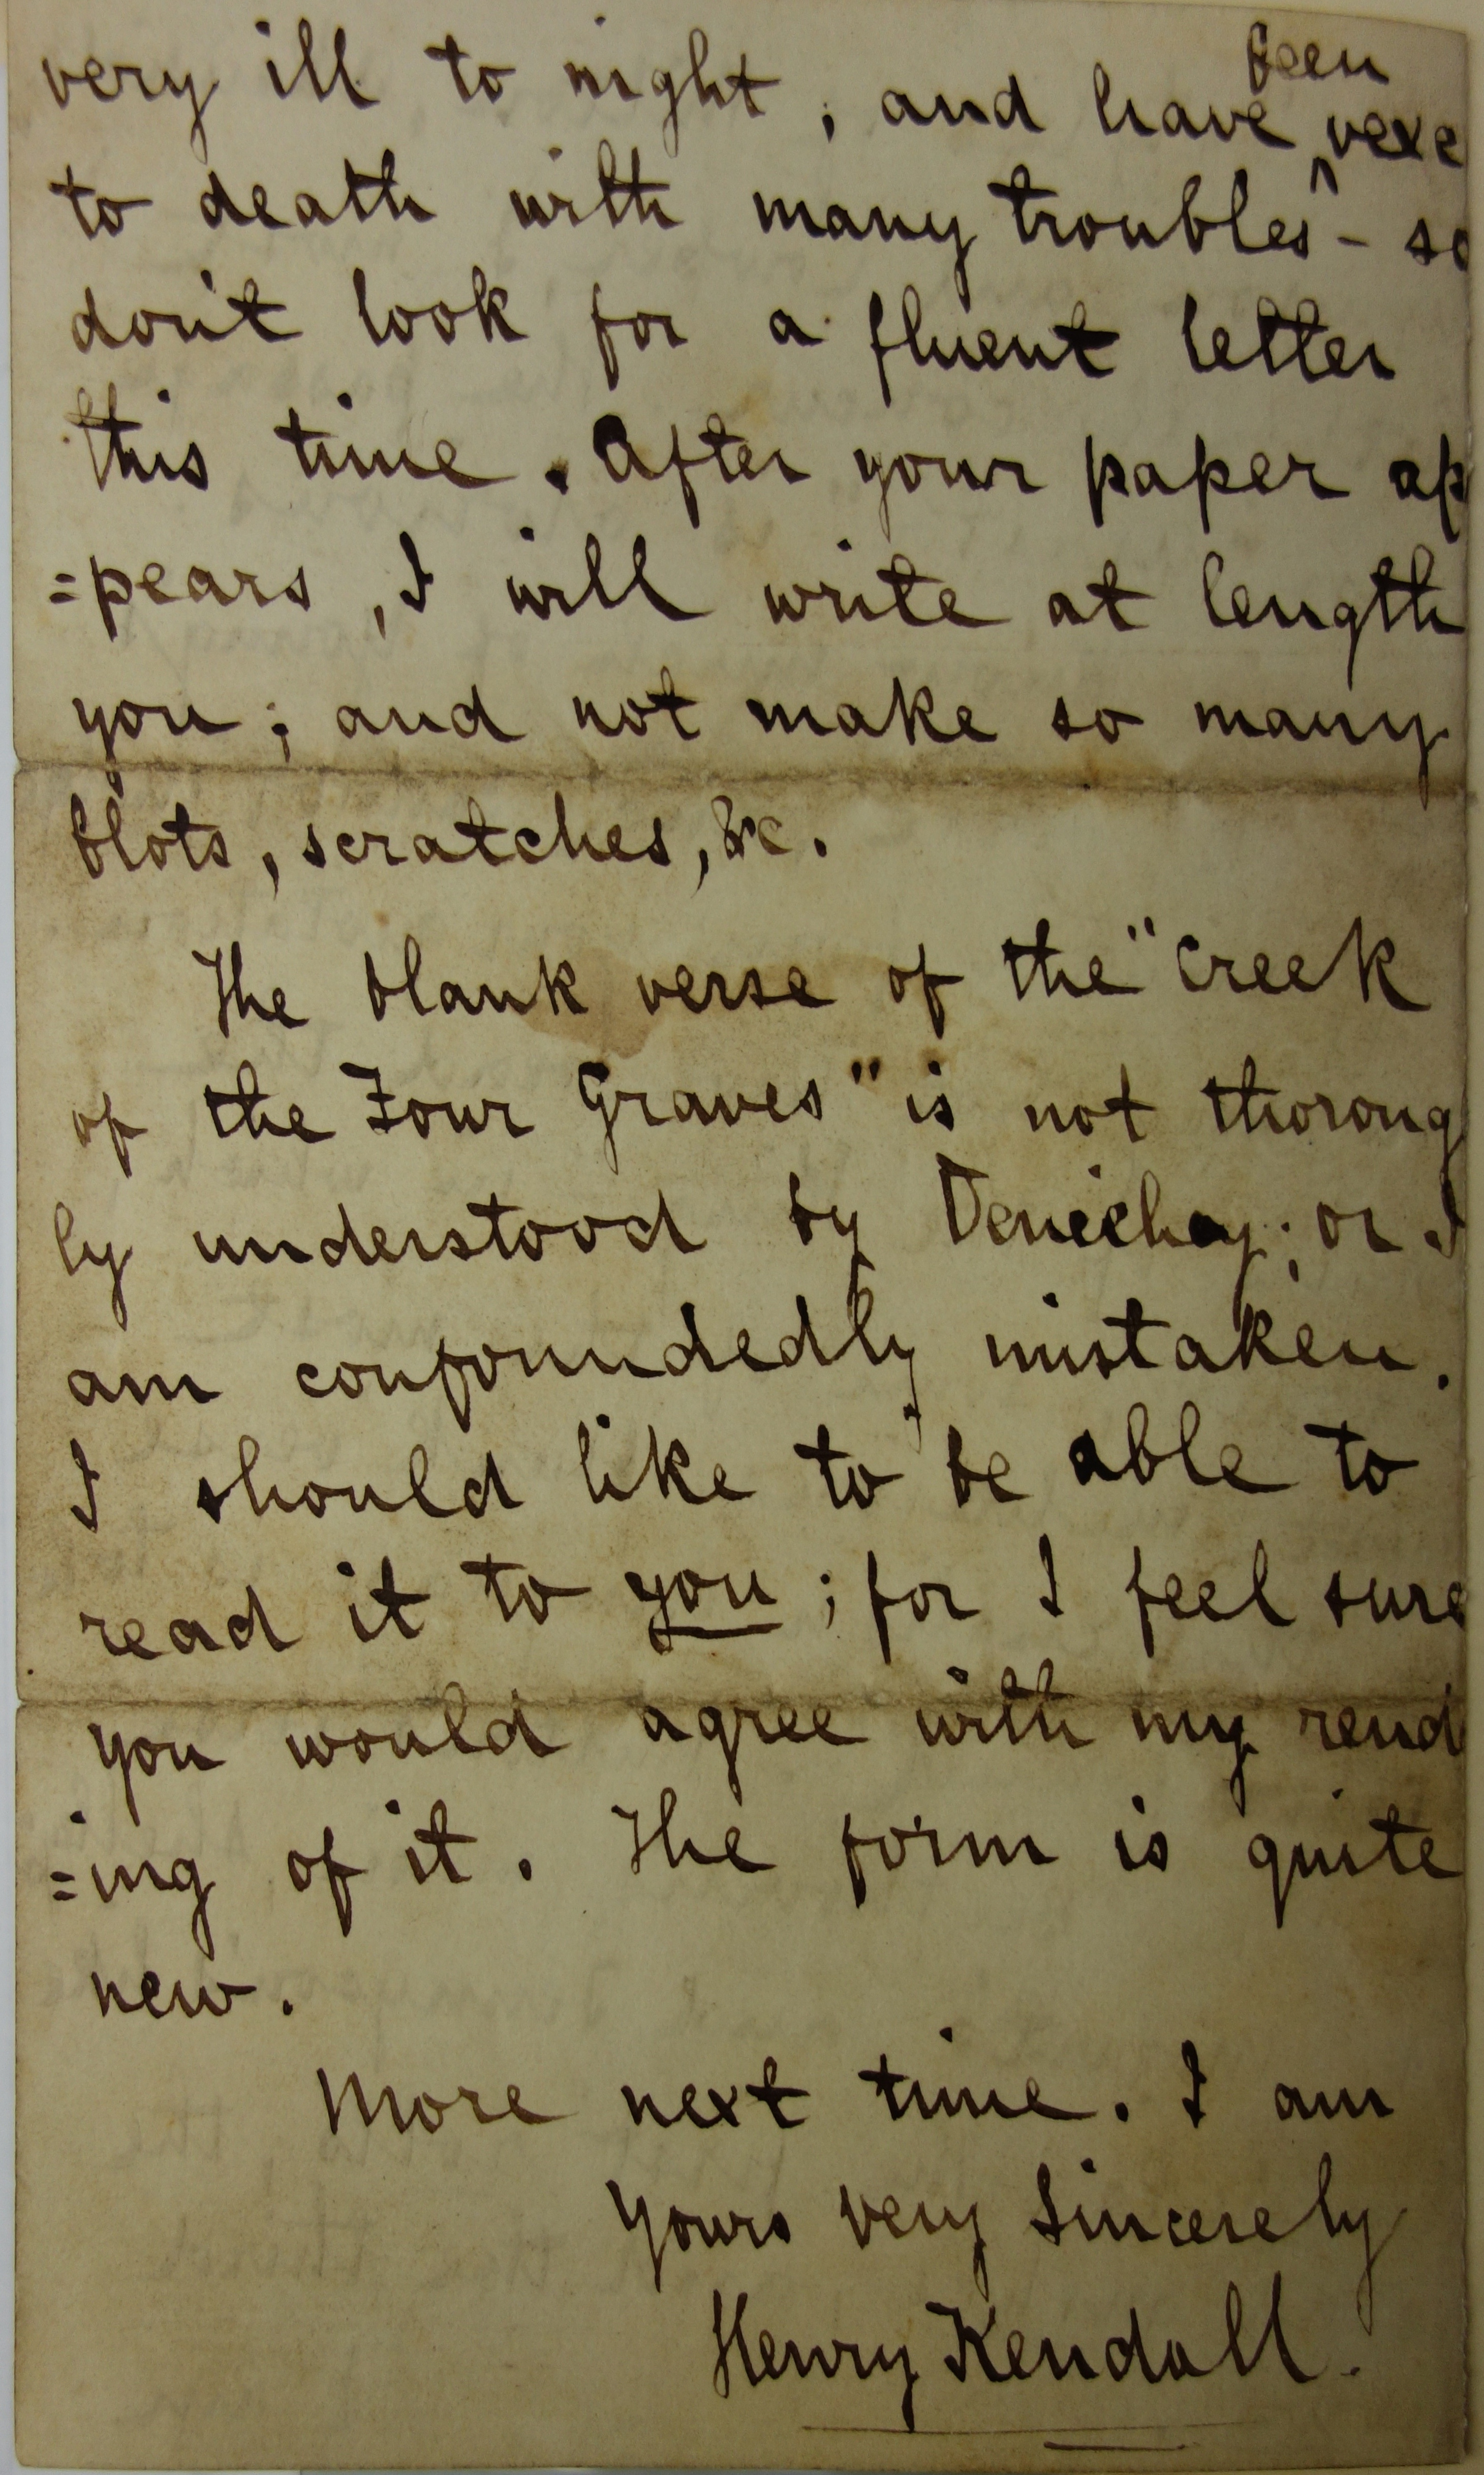 very ill to night, and have been vexe
to death with many troubles - so
don't look for a fluent letter
this time. After your paper ap
=pears, I will write at length
you; and not make so many
blots, scratches, &c.
The blank verse of the "Creek
of the Four Graves" is not thoroug
ly understood by Deniehy; or I
am confoundedly mistaken.
I should like to be able to
read it to you; for I feel sure
you would agree with my rend
=ing of it. The form is quite
new.
More next time. I am
Yours very sincerely
Henry Kendall.